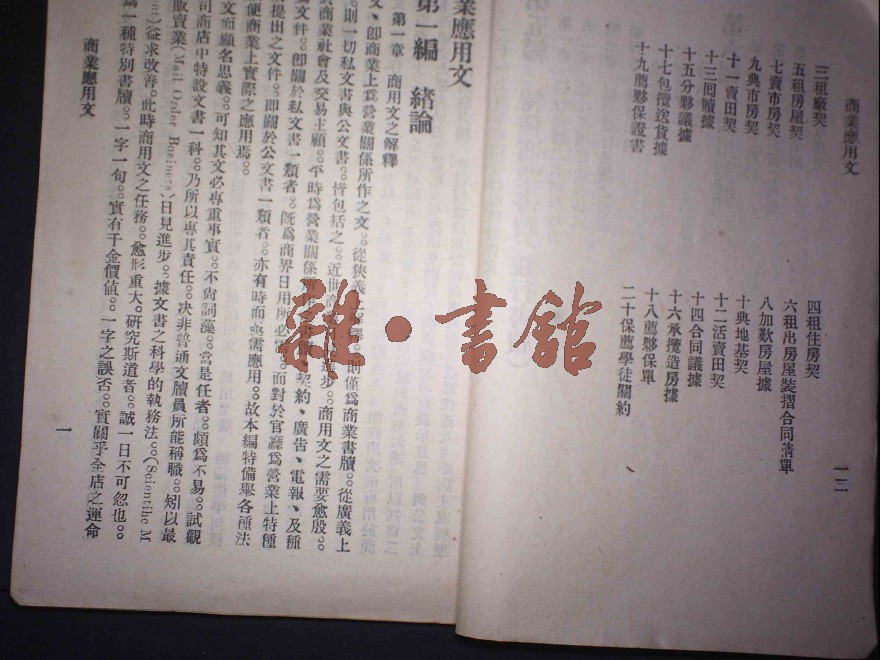 商業應用文
三租廠契
五租房屋契
七賣市房契
九典市房契
十一賣田契
十三回贖據
十五分夥議據
十七包攬送貨據
十九薦夥保證書
四租住房契
六租出房屋裝摺合同清單
八加歎房屋據
十典地基契
十二活賣田契
十四合同議據
十六承攬造房據
十八薦夥保單
二十保薦學徒關約
一二
業應用文
第一編 緒論
第一章 商用文之解釋
文、卽商業上爲營業關係所作之文。從狹義之 則僅爲商業書牘。從廣義上
則一切私文書與公文書。皆包括之。近世 步。商用文之需要愈殷。
商業社會及交易主顧。平時爲營業關係所 契約、廣告、電報、及種
文件。卽關於私文書一類者。旣爲商界日用所必 而對於官廳爲營業上特種
提出之文件。卽關於公文書一類者。亦有時而亟需應用。故本編特備舉各種法
便商業上實際之應用焉。
文而顧名思義。可知其文必專重事實。不尙詞藻。當是任者。頗爲不易。試觀
司商店中特設文書一科。乃所以專其責任。決非普通文牘員所能稱職。矧以最
販賣業(Mail Order Business)日見進步。據文書之科學的執務法。(Scientific M
益求改善。此時商用文之任務。愈形重大。研究斯道者。誠一日不可忽也。
爲一種特別書牘。一字一句。實有千金價値。一字之誤否。實關乎全店之運命
商業應用文
一
雜·書館